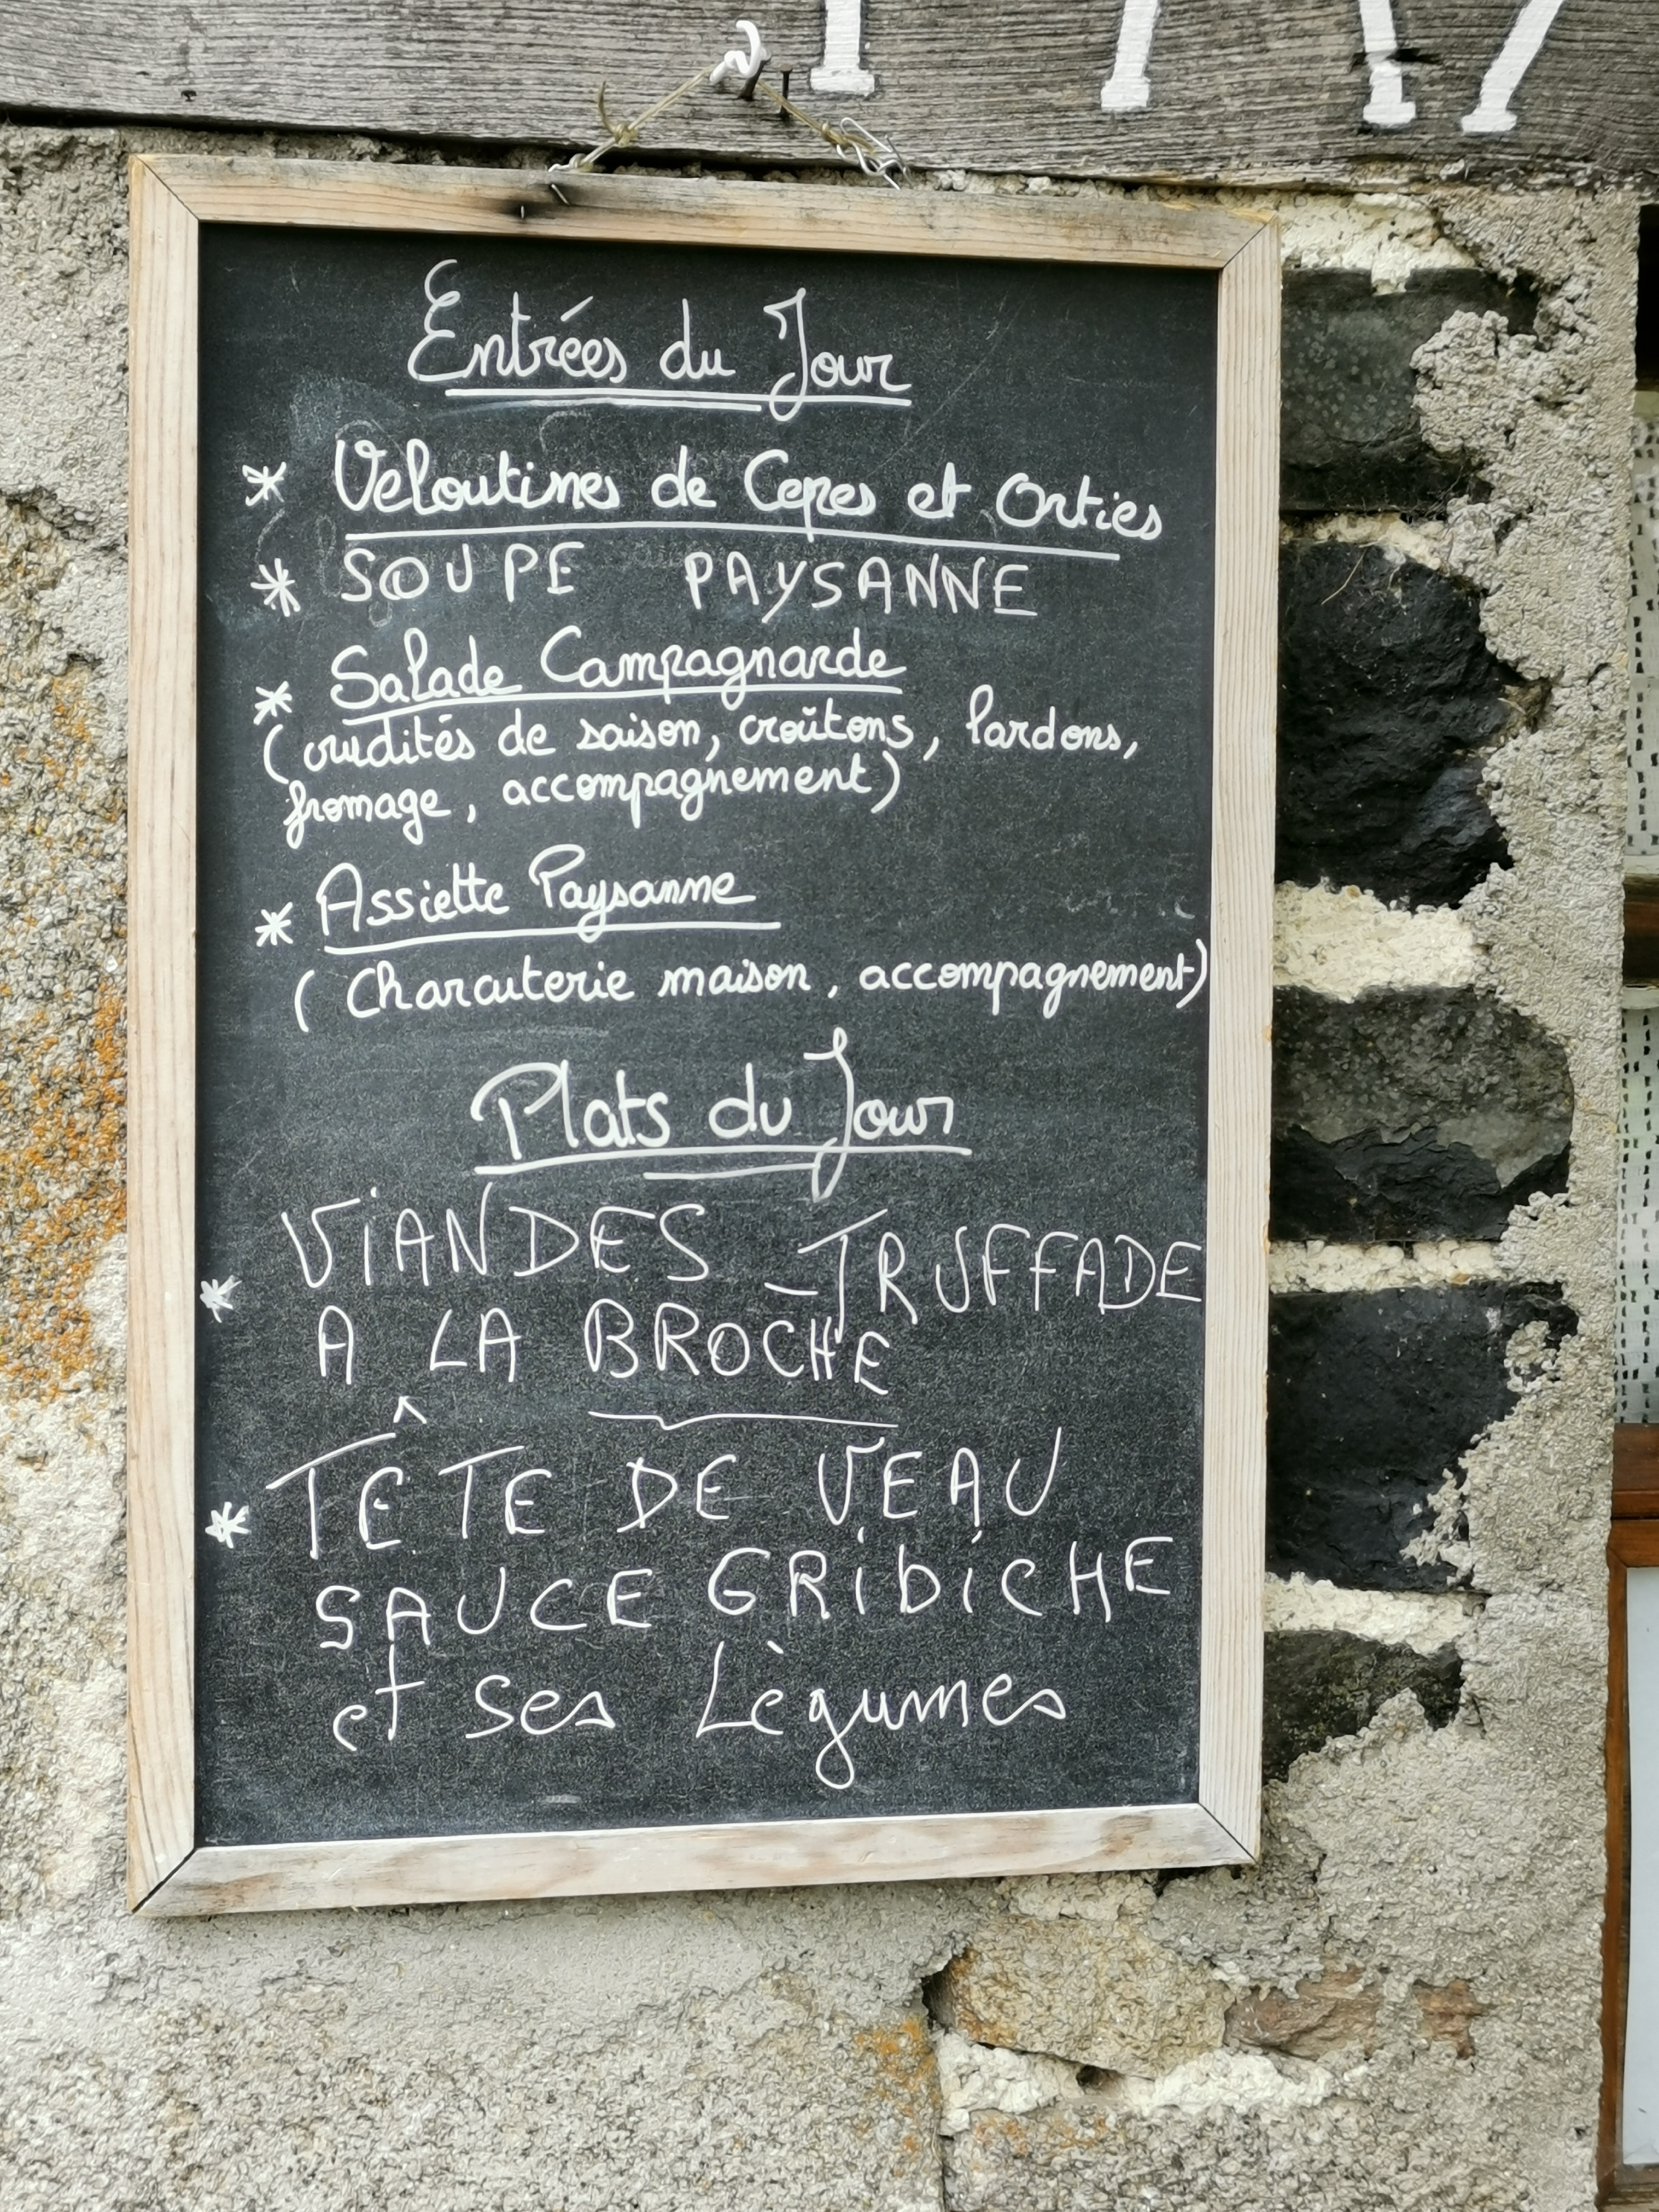 Entrées du Jour
* Veloutines de Cepes et Orties
* SOUPE PAYSANNE
* Salade Campagnarde
(crudités de saison, croûtons, lardons,
fromage, accompagnement)
* Assiette Paysanne
(Charcuterie maison, accompagnement)
Plats du Jour
* VIANDES - TRUFFADE
A LA BROCHE
* TÊTE DE VEAU
SAUCE GRIBICHE
et ses Lègumes